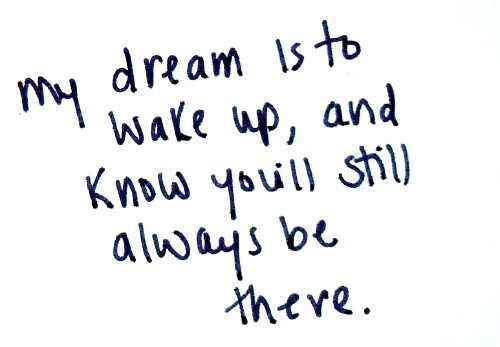 my dream is to
wake up, and
know you'll still
always be
there.